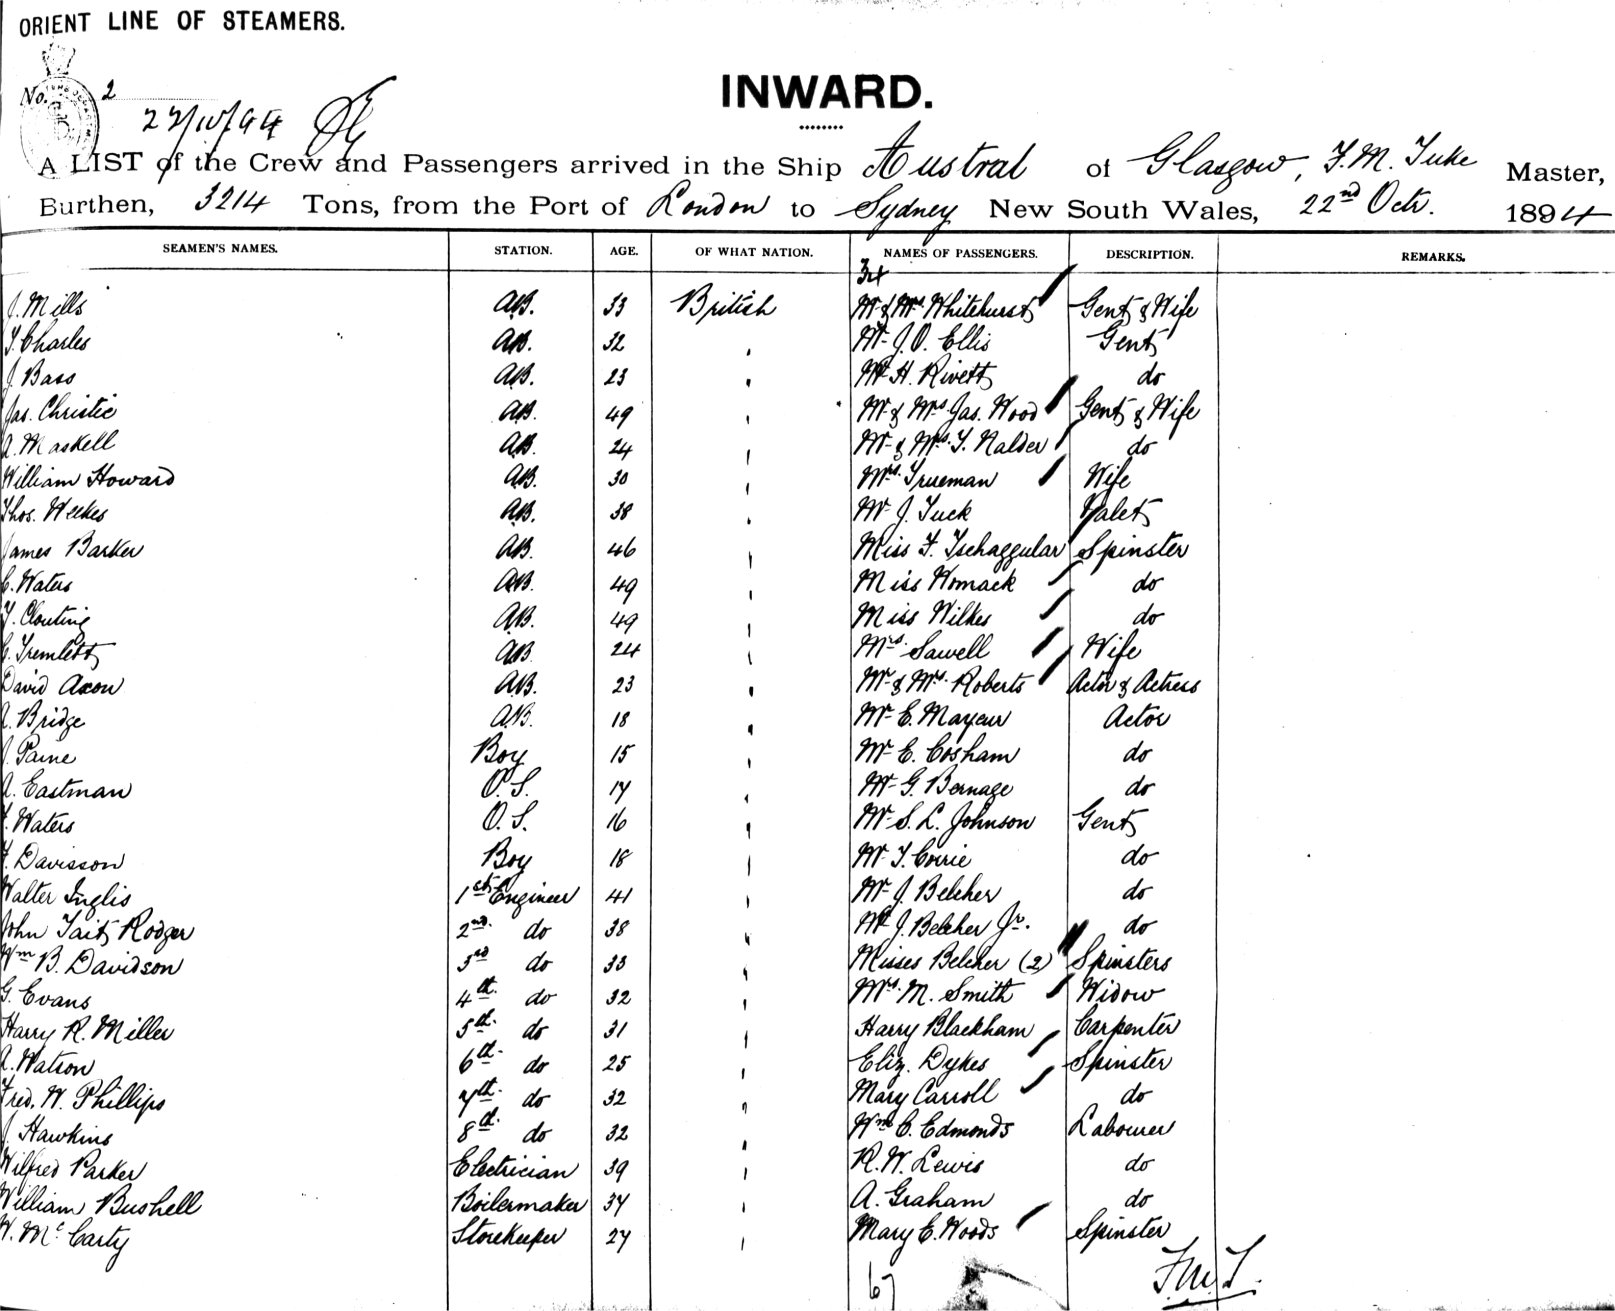 ORIENT LINE OF STEAMERS.
No. 2
22/10/94
INWARD.
A LIST of the Crew and Passengers arrived in the Ship Austral of Glasgow, F.M. Tuke Master,
Burthen, 3214 Tons, from the Port of London to Sydney New South Wales, 22nd Octr. 1894
SEAMEN'S NAMES. STATION. AGE. OF WHAT NATION. NAMES OF PASSENGERS. DESCRIPTION. REMARKS.
34
J. Mills AB. 33 British Mr & Mrs Whitehurst Gent & Wife
T. Charles AB. 32 " Mr J.O. Ellis Gent
J. Bass AB. 23 " Mr H. Rivett do
Jas. Christie AB. 49 " Mr & Mrs Jas. Wood Gent & Wife
A. Maskell AB. 24 " Mr & Mrs T. Nalder do
William Howard AB. 30 " Mrs. Trueman Wife
Thos. Weekes AB. 38 " Mr J. Tuck Valet
James Barker AB. 46 " Miss F. Tschaggular Spinster
C. Waters AB. 49 " Miss Womack do
T. Clouting AB. 49 " Miss Wilkes do
C. Tremlett AB. 24 " Mrs. Sawell Wife
David Axon AB. 23 " Mr & Mrs. Roberts Actor & Actress
A. Bridge A.B. 18 " Mr E. Mayeur Actor
J. Paine Boy 15 " Mr E. Cosham do
A. Eastman O.S. 17 " Mr G. Bernage do
F. Waters O.S. 16 " Mr S. L. Johnson Gent
F. Davisson Boy 18 " Mr T. Corrie do
Walter Inglis 1st Engineer 41 " Mr J. Belcher do
John Tait Rodger 2nd. do 38 " Mr J. Belcher Jr. do
Wm B. Davidson 3rd do 33 " Misses Belcher (2) Spinsters
G. Evans 4th. do 32 " Mrs. M. Smith Widow
Harry R. Miller 5th. do 31 " Harry Blackham Carpenter
A. Watson 6th. do 25 " Eliz. Dykes Spinster
Fred. W. Phillips 7th. do 32 " Mary Carroll do
J. Hawkins 8th. do 32 " Wm C. Edmonds Labourer
Wilfred Parker Electrician 39 " R. W. Lewis do
William Bushell Boilermaker 37 " A. Graham do
W. McCarty Storekeeper 27 " Mary E. Woods Spinster
67
F.M.T.